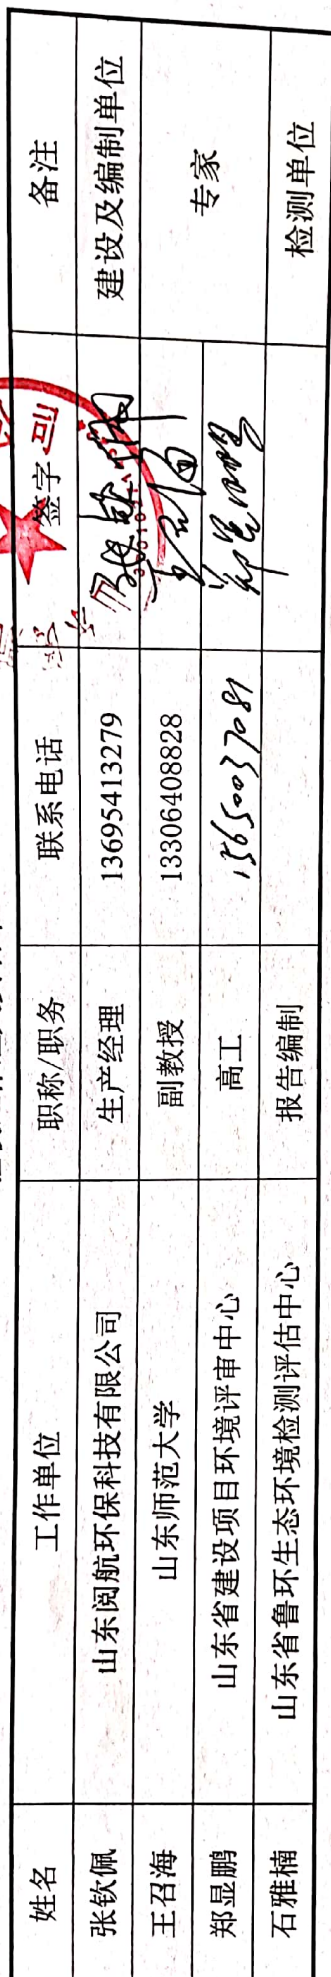 姓名 工作单位 职称/职务 联系电话 签字 备注
张钦佩 山东阅航环保科技有限公司 生产经理 13695413279 张钦佩 建设及编制单位
王召海 山东师范大学 副教授 13306408828 专家
郑显鹏 山东省建设项目环境评审中心 高工 15650037081 郑显鹏
石雅楠 山东省鲁环生态环境检测评估中心 报告编制 检测单位